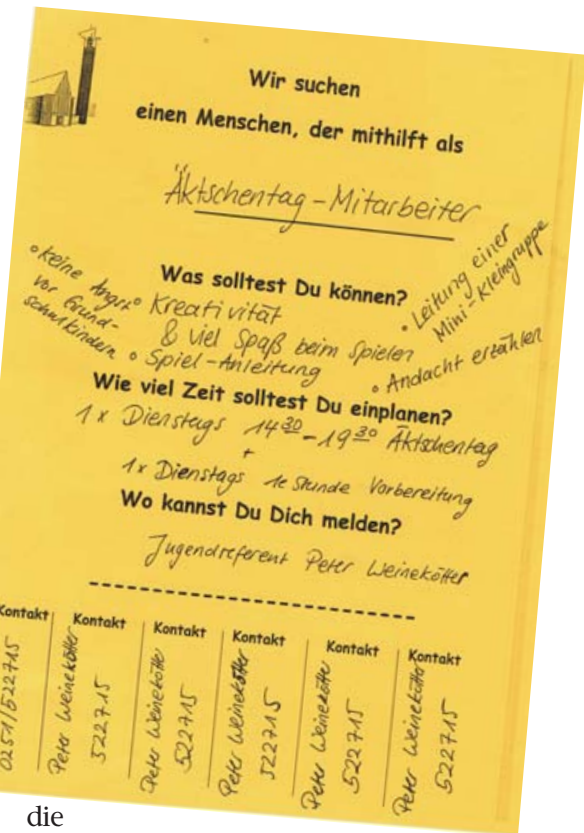 Wir suchen
einen Menschen, der mithilft als
Äktschentag - Mitarbeiter
Was solltest Du können?
° keine Angst
vor Grund-
schulkindern
° Kreativität
& viel Spaß beim Spielen
° Spiel-Anleitung
° Leitung einer
Mini-Kleingruppe
° Andacht erzählen
Wie viel Zeit solltest Du einplanen?
1x Dienstags 14³⁰ - 19³⁰ Äktschentag
+
1x Dienstags 1e Stunde Vorbereitung
Wo kannst Du Dich melden?
Jugendreferent Peter Weinekötter
Kontakt
0251/522715
Kontakt
Peter Weinekötter
522715
Kontakt
Peter Weinekötter
522715
Kontakt
Peter Weinekötter
522715
Kontakt
Peter Weinekötter
522715
Kontakt
Peter Weinekötter
522715
die